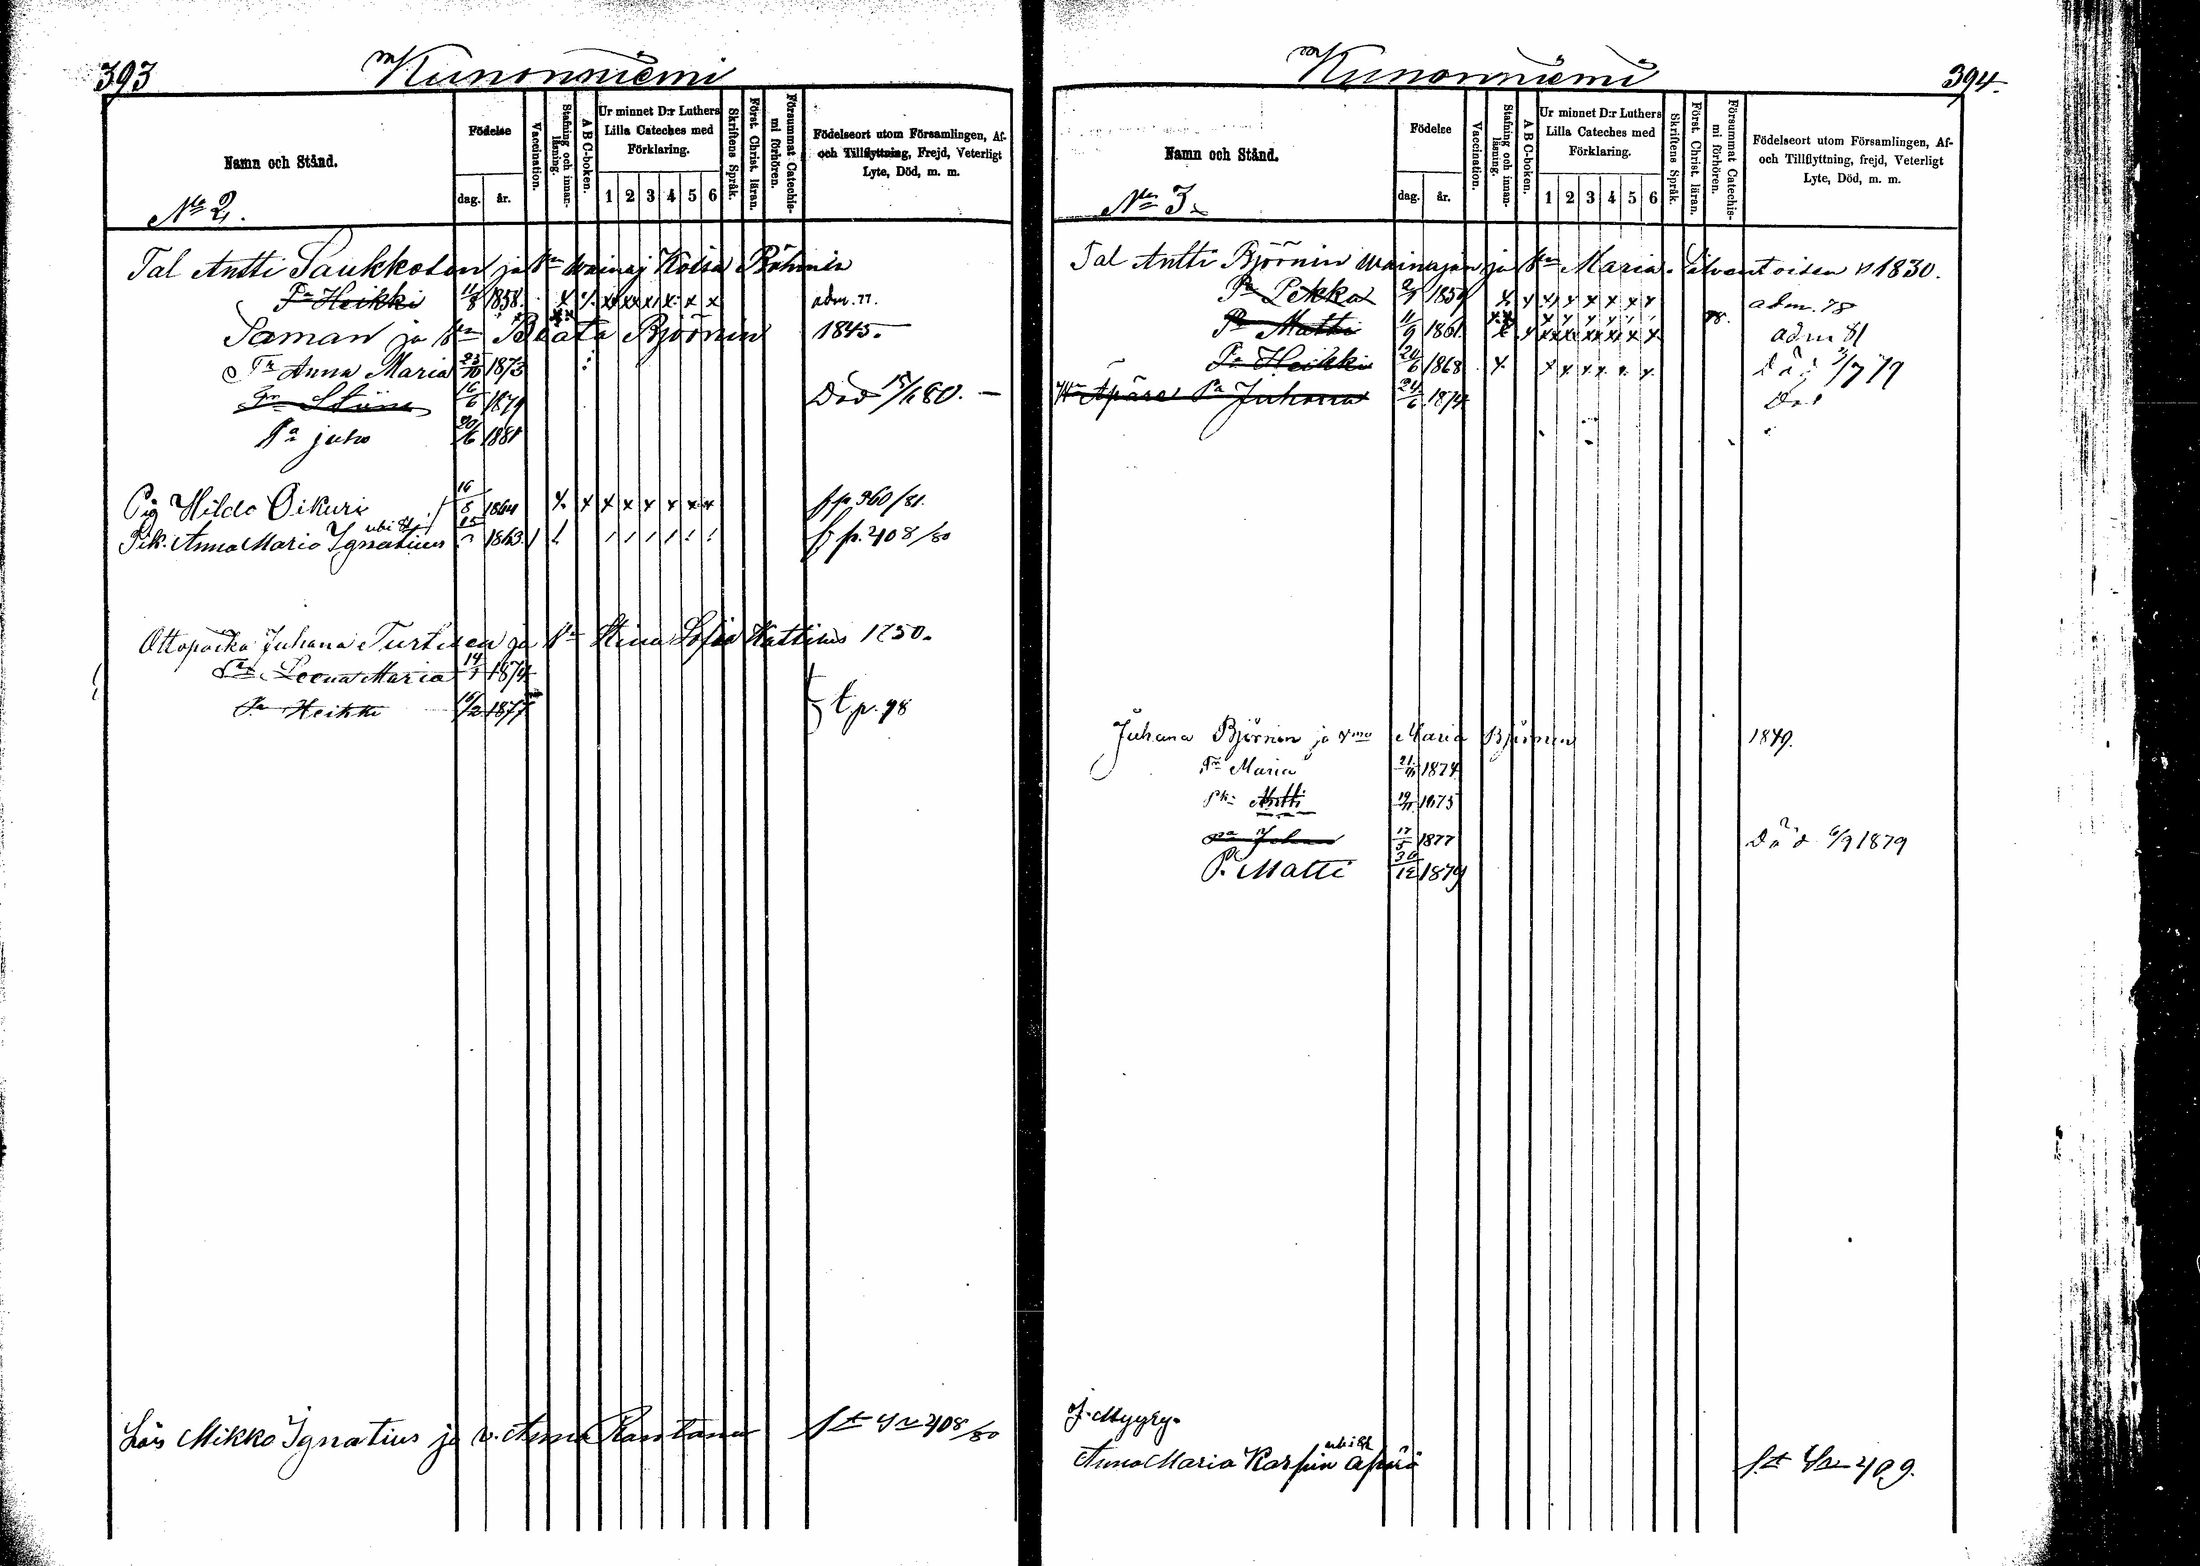 393
Kunonniemi
Namn och Stånd.
Födelse
dag.
år.
Vaccination.
Stafning och innan-läsning.
A B C-boken.
Ur minnet D:r Luthers
Lilla Cateches med
Förklaring.
1 2 3 4 5 6
Skriftens Språk.
Först. Christ. läran.
Försummat Catechis-mi förhören.
Födelseort utom Församlingen, Af-
och Tillflyttning, Frejd, Veterligt
Lyte, Död, m. m.
No 2.
Tal Antti Saukkosen ja Vn Wainaj Köisa Böhmin
Pa Heikki 11/8 1858. x x x x x x x adm. 77.
Saman ja Vn Beata Björnin 1845.
Tr Anna Maria 23/10 1873
Tr Stiina 16/6 1879 Död 15/1 80.
Pa juho 20/6 1881
Pig Hilda Oikuri 1864 x x x x x x x x fp. 360/81.
Pik. Anna Maria Ignatius 1863 f p. 408/80
Juhana Turtisen ja Vn Stina Sofia Kattinis 1850.
Tr Leena Maria 14/1 1874
Pa Heikki 16/2 1877
t. p. 98
Lois Mikko Ignatius ja v. Anna Rantana 408/80
Kunonniemi
394.
Namn och Stånd.
Födelse
dag.
år.
Vaccination.
Stafning och innan-läsning.
A B C-boken.
Ur minnet D:r Luthers
Lilla Cateches med
Förklaring.
1 2 3 4 5 6
Skriftens Språk.
Först. Christ. läran.
Försummat Catechis-mi förhören.
Födelseort utom Församlingen, Af-
och Tillflyttning, frejd, Veterligt
Lyte, Död, m. m.
No 3.
Tal Antti Björnin wainajan ja Vn Maria Silventoisen 1830.
Pa Pekka 1859 x x x x x x x x adm. 78
Pa Matti 11/9 1861. x x x x x x x x 78. adm 81
Pa Heikki 20/6 1868 x x x x x x x Död
Äpärä Pa Juhana 24/6 1874 Död
Juhana Björnin ja Vmo Maria Björnin 1849.
Tr Maria 1874
Antti 1875
Pa Johan 17/5 1877 Död 6/9 1879
P. Matti 30/12 1879
J. Myyry.
Anna Maria Karpin äpärä 409.